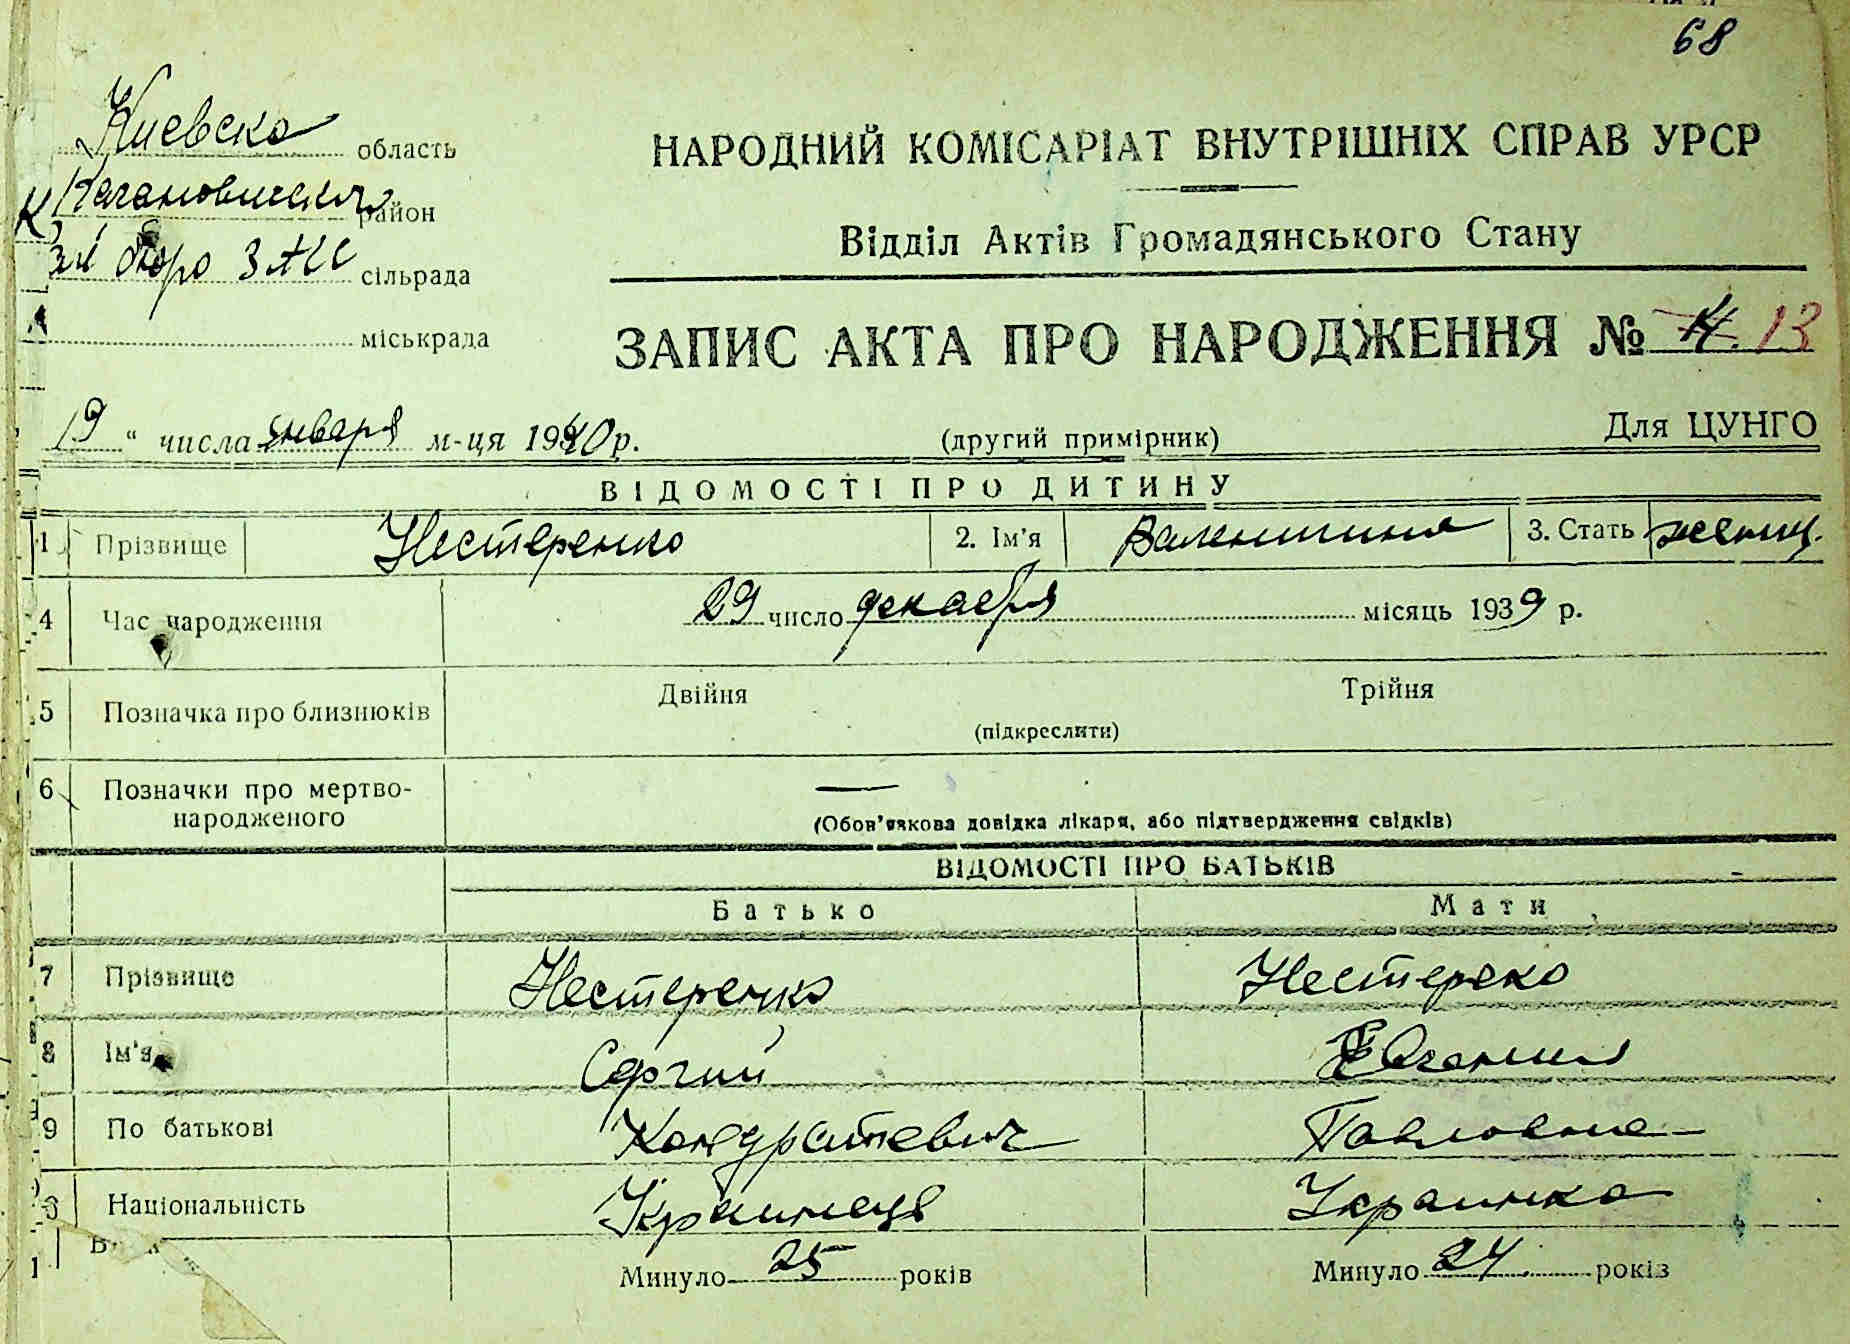 68
Киевска область
Кагановическ район
бюро ЗАГС сільрада
міськрада
НАРОДНИЙ КОМІСАРІАТ ВНУТРІШНІХ СПРАВ УРСР
Відділ Актів Громадянського Стану
ЗАПИС АКТА ПРО НАРОДЖЕННЯ № 14. 13
19 " числа января м-ця 1940 р. (другий примірник) Для ЦУНГО
ВІДОМОСТІ ПРО ДИТИНУ
1 Прізвище Нестеренко 2. Ім'я Валентина 3. Стать женщ.
4 Час народження 29 число декабря місяць 1939 р.
5 Позначка про близнюків Двійня Трійня
(підкреслити)
6 Позначки про мертво-
народженого —
(Обов'язкова довідка лікаря, або підтвердження свідків)
ВІДОМОСТІ ПРО БАТЬКІВ
Батько Мати
7 Прізвище Нестеренко Нестереко
8 Ім'я Сергий Евгения
9 По батькові Кондратевич Павловна
Національність Украинець Украинка
Минуло 25 років Минуло 24 років